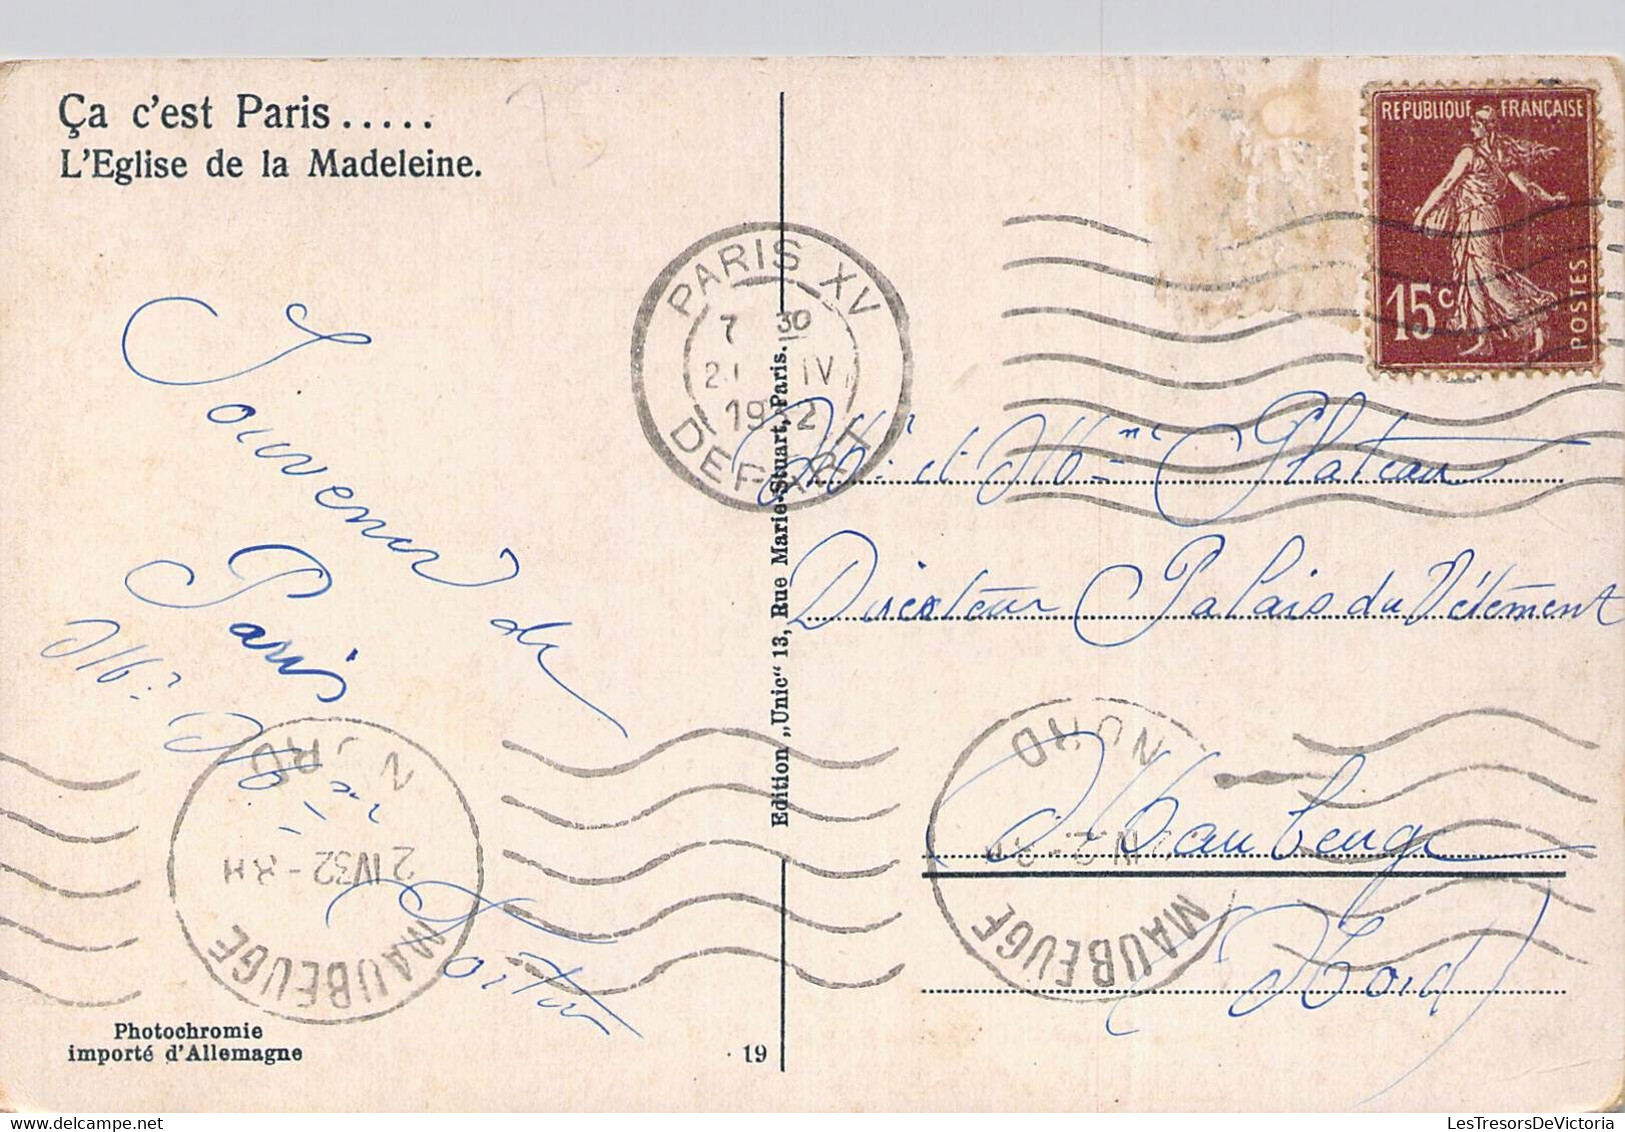 Ça c'est Paris.....
L'Eglise de la Madeleine.
REPUBLIQUE FRANÇAISE
15c
POSTES
PARIS XV
7 30
IV
1932
DEPART
Souvenir de
Paris
Mr & Mme
Edition „Unic“ 13, Rue Marie-Stuart, Paris.
Mr et Mme Plateau
Directeur Palais du Vêtement
Maubeuge
(Nord)
NORD
2 IV 32 -
MAUBEUGE
NORD
MAUBEUGE
Photochromie
importé d'Allemagne
19
LesTresorsDeVictoria